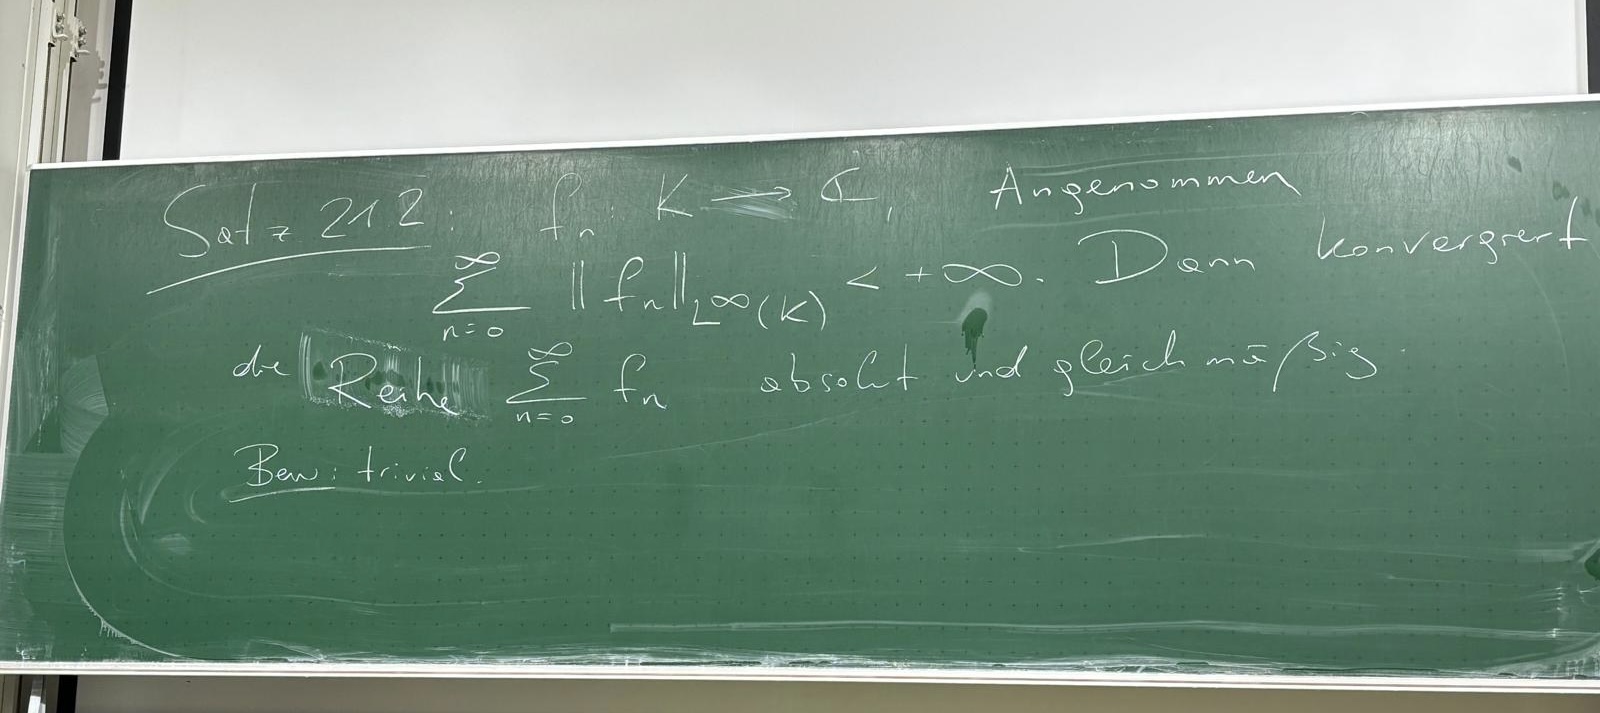 Satz 21.2: fₙ: K → ℂ, Angenommen
∑_{n=0}^{∞} ‖fₙ‖_{L^∞(K)} < +∞. Dann konvergiert
die Reihe ∑_{n=0}^{∞} fₙ absolut und gleichmäßig.
Bew: trivial.